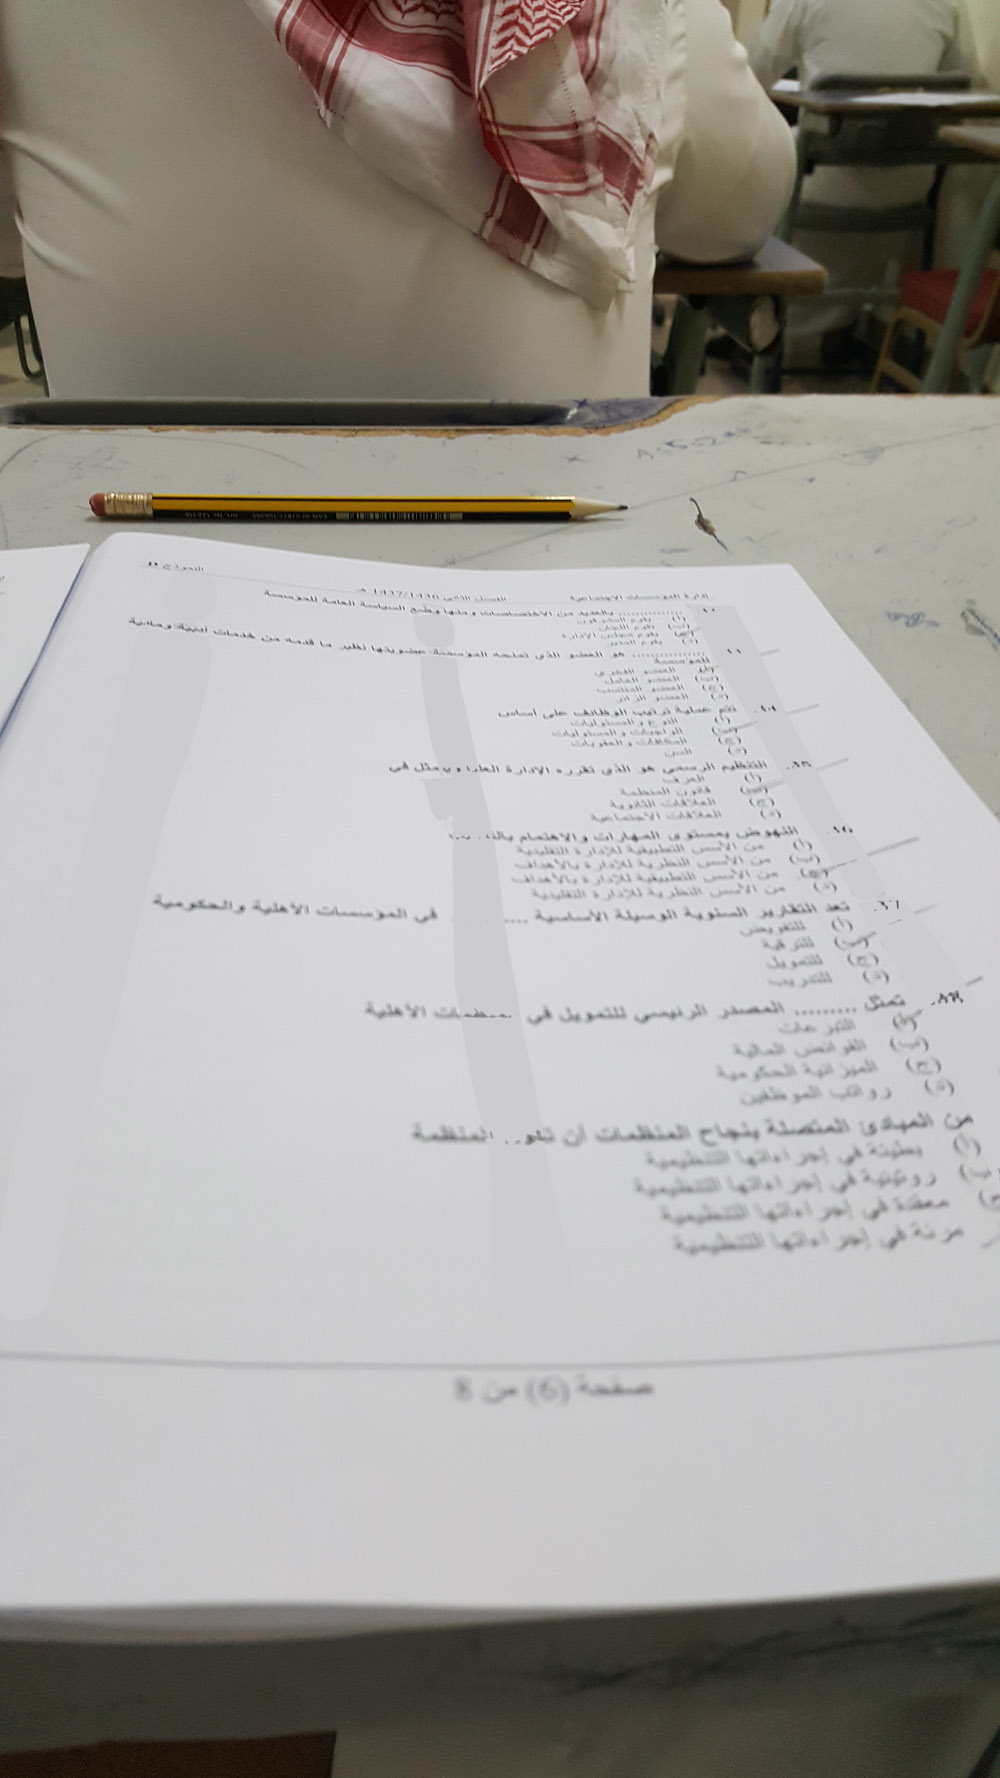 إدارة المؤسسات الاجتماعية الفصل الثاني 1437/1436 هـ النموذج D
.............. بالعديد من الاختصاصات ومنها وضع السياسة العامة للمؤسسة
(أ) يقوم المشرفون
(ب) يقوم اللجان
(ج) يقوم مجلس الإدارة
(د) يقوم المدير
............... هو العضو الذي تمنحه المؤسسة عضويتها نظير ما قدمه من خدمات أدبية ومادية
للمؤسسة
(أ) العضو الفخري
(ب) العضو العامل
(ج) العضو المنتسب
(د) العضو الزائر
تتم عملية ترتيب الوظائف على أساس
(أ) النوع والمسئوليات
(ب) الواجبات والمسئوليات
(ج) المكافآت والعقوبات
(د) السن
التنظيم الرسمي هو الذي تقرره الإدارة العليا ويتمثل في
(أ) العرف
(ب) قانون المنظمة
(ج) العلاقات الثانوية
(د) العلاقات الاجتماعية
النهوض بمستوى المهارات والاهتمام
(أ) من الأسس التطبيقية للإدارة التقليدية
(ب) من الأسس النظرية للإدارة بالأهداف
(ج) من الأسس التطبيقية للإدارة بالأهداف
(د) من الأسس النظرية للإدارة التقليدية
تعد التقارير السنوية الوسيلة الأساسية .......... في المؤسسات الأهلية والحكومية
(أ) للتفويض
(ب) للترقية
(ج) للتمويل
(د) للتدريب
تمثل ......... المصدر الرئيسي للتمويل في الأهلية
(أ) التبرعات
(ب) الفرائض المالية
(ج) الميزانية الحكومية
(د) رواتب الموظفين
من المبادئ المتصلة بنجاح المنظمات أن المنظمة
(أ) بطيئة في إجراءاتها التنظيمية
(ب) روتينية في إجراءاتها التنظيمية
(ج) معقدة في إجراءاتها التنظيمية
مرنة في إجراءاتها التنظيمية
صفحة (6) من 8